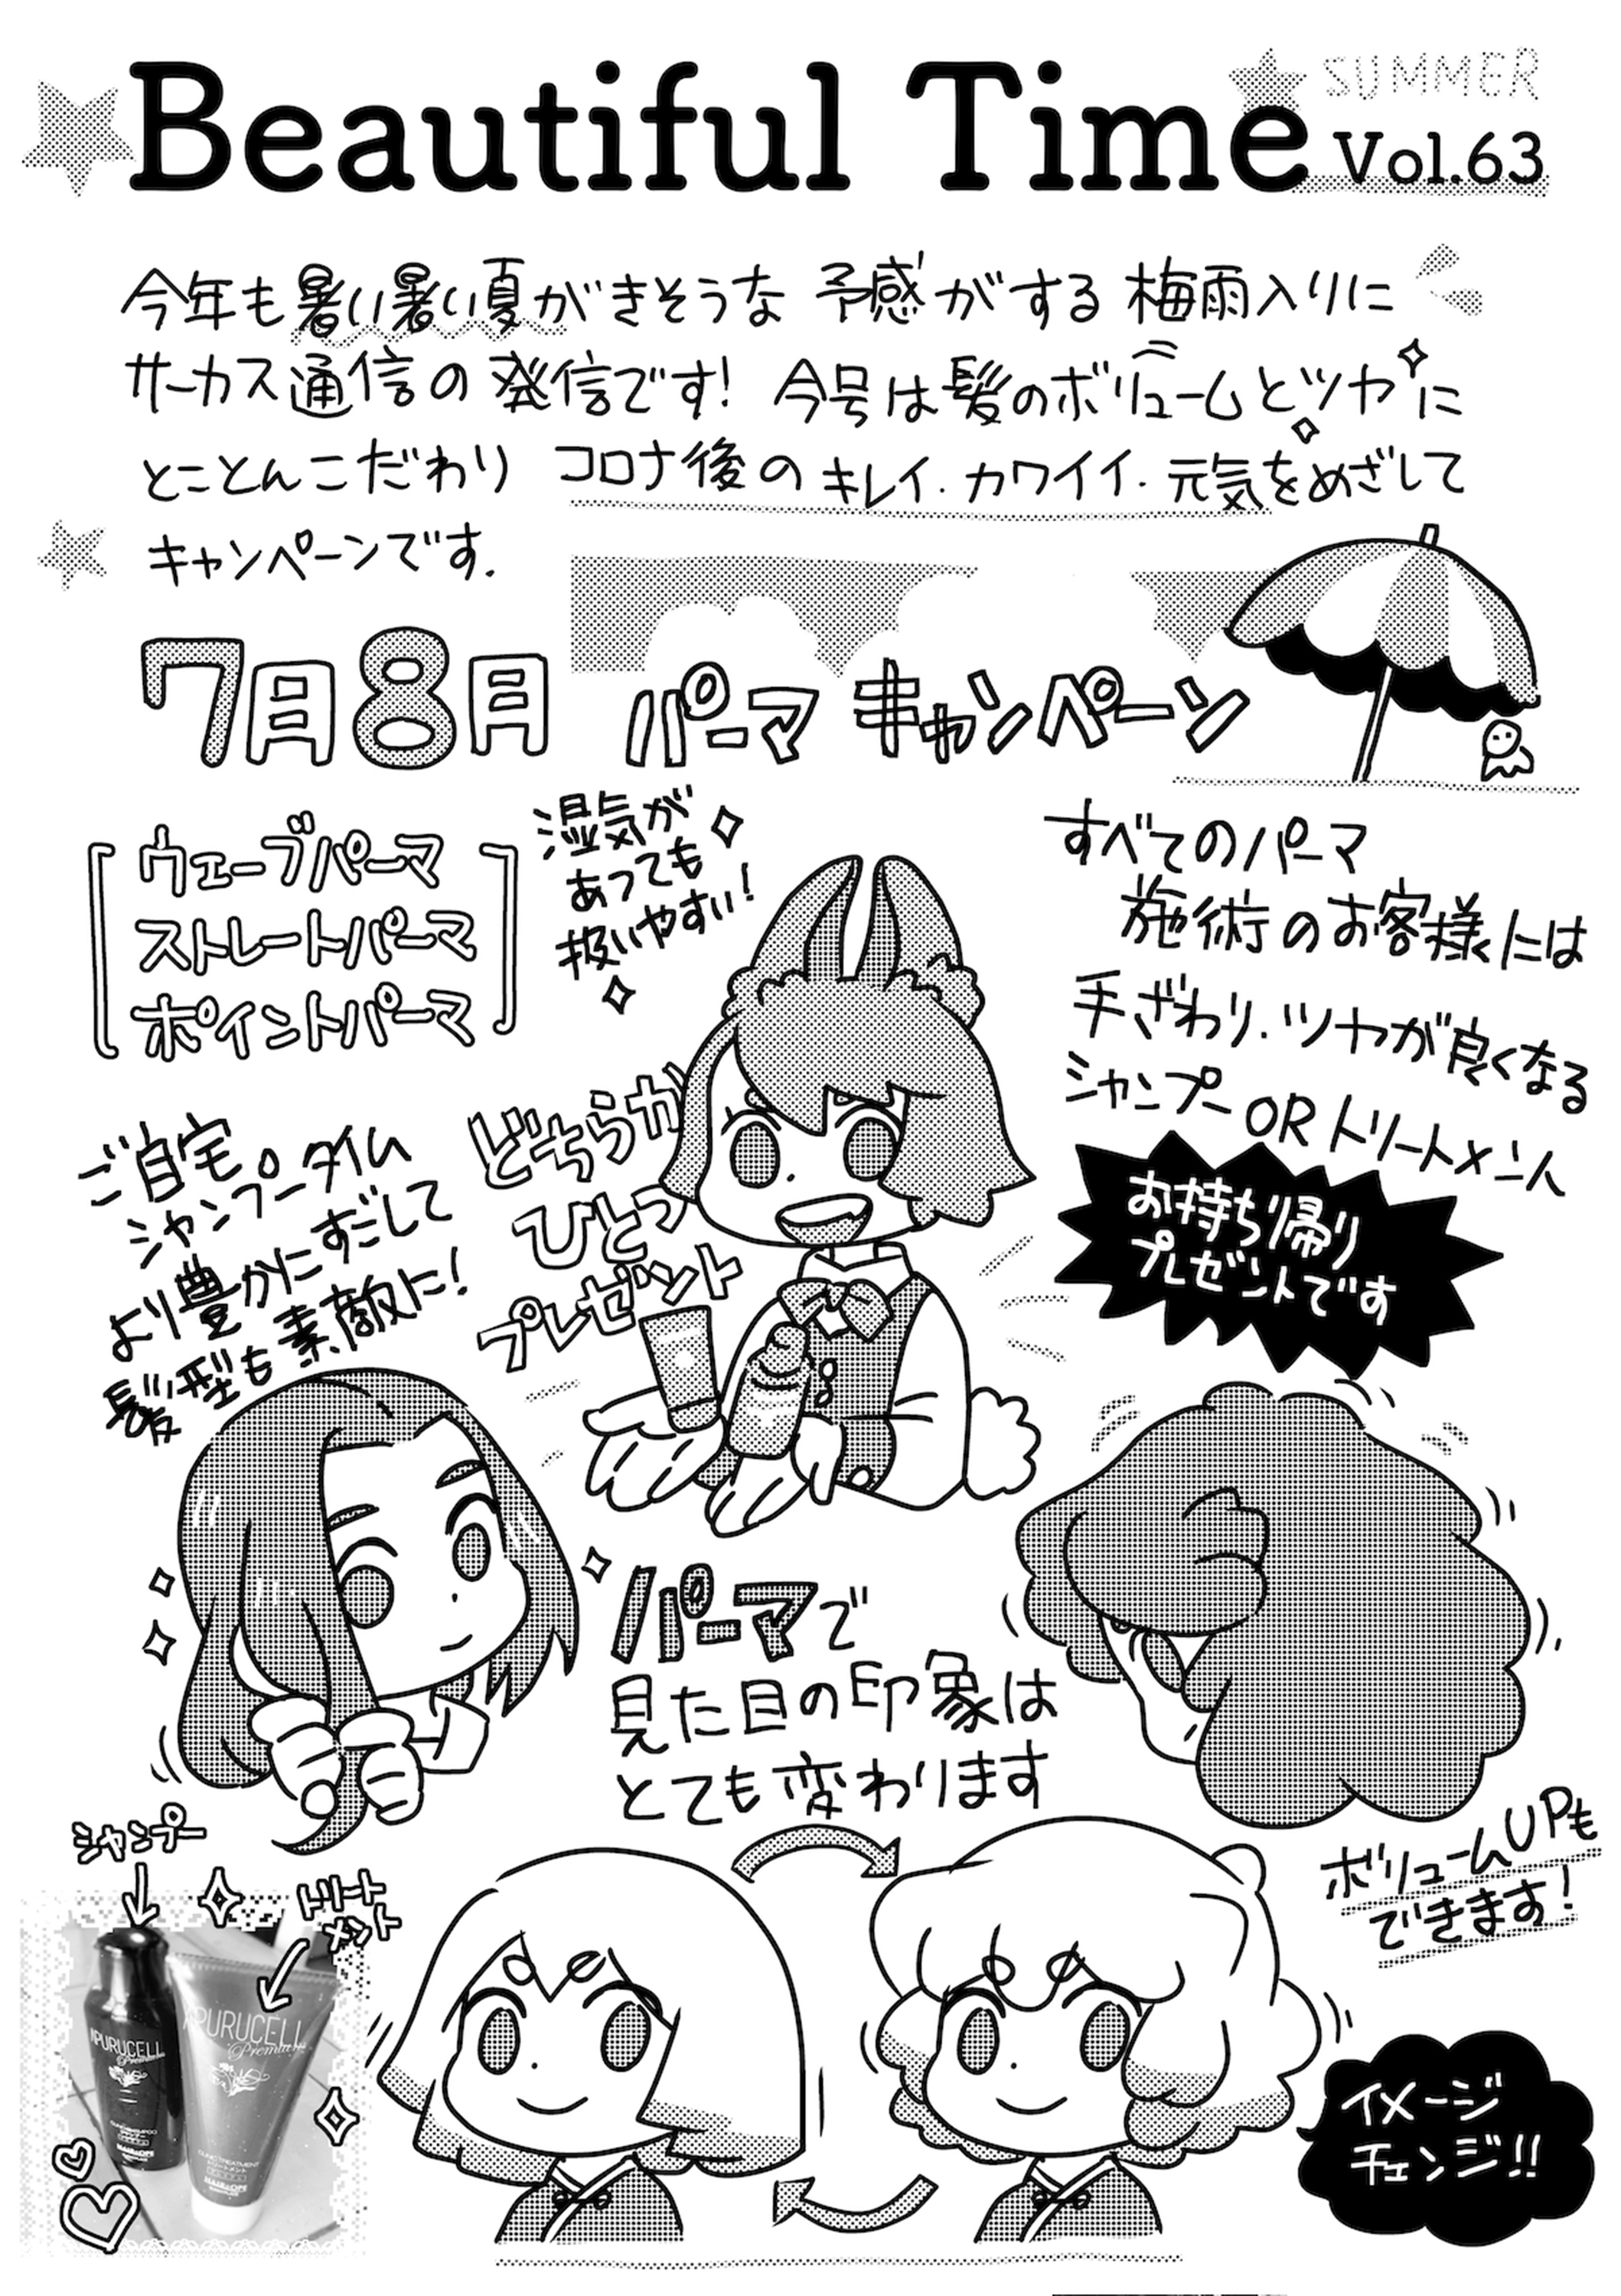 Beautiful Time
SUMMER
Vol.63
今年も暑い暑い夏がきそうな 予感がする 梅雨入りに
サーカス通信の発信です! 今号は髪のボリュームとツヤに
とことんこだわり コロナ後の キレイ.カワイイ.元気をめざして
キャンペーンです.
7月8月 パーマ キャンペーン
ウェーブパーマ
ストレートパーマ
ポイントパーマ
湿気が
あっても
扱いやすい!
すべてのパーマ
施術のお客様には
手ざわり.ツヤが良くなる
シャンプーORトリートメント
お持ち帰り
プレゼントです
どちらか
ひとつ
プレゼント
ご自宅
シャンプータイム
より豊かにすごして
髪型も素敵に!
パーマで
見た目の印象は
とても変わります
ボリュームUPも
できます!
シャンプー
トリート
メント
PURUCELL
Premium
PURUCELL
Premium
イメージ
チェンジ!!